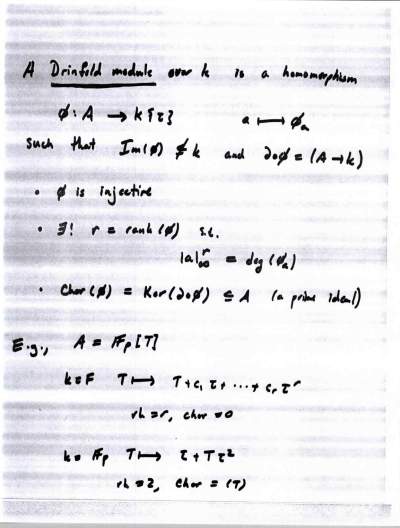 A Drinfeld module over k is a homomorphism
φ : A → k{τ}    a ↦ φ_a
such that Im(φ) ⊄ k and ∂∘φ = (A → k)
• φ is injective
• ∃! r = rank(φ) s.t.
|a|_∞^r = deg(φ_a)
• Char(φ) = Ker(∂∘φ) ⊆ A (a prime ideal)
E.g., A = F_p[T]
k = F    T ↦ T + c_1 τ + ⋯ + c_r τ^r
rk = r, char = 0
k = F_p    T ↦ τ + T τ^2
rk = 2, char = (T)